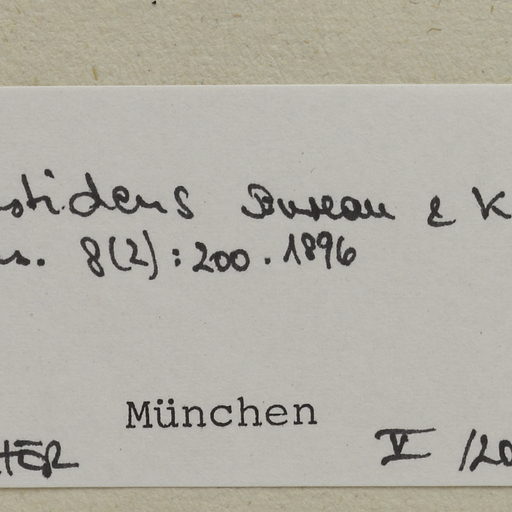 stidens Bureau & K
ns. 8(2):200.1896
München
HER V /20